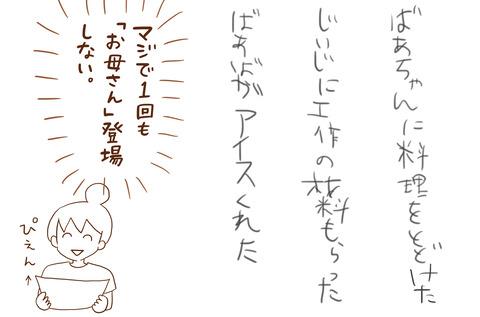 ばあちゃんに料理をとどけた
じいじに工作の材料もらった
ばあばがアイスくれた
マジで1回も
「お母さん」登場
しない。
ぴえん→